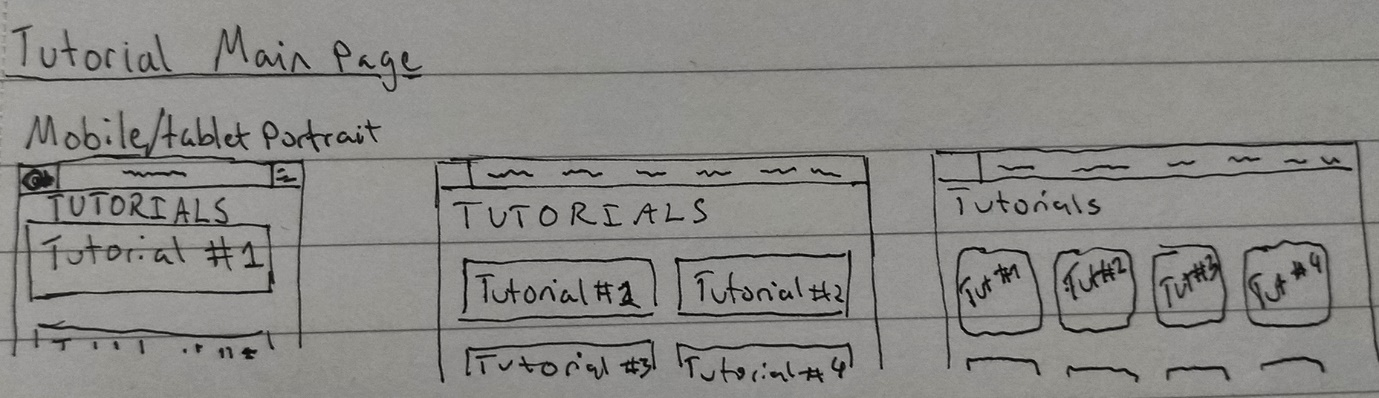 Tutorial Main Page
Mobile/tablet Portrait
TUTORIALS
Tutorial #1
TUTORIALS
Tutorial #1 Tutorial #2
Tutorial #3 Tutorial #4
Tutorials
Tut #1 Tut #2 Tut #3 Tut #4